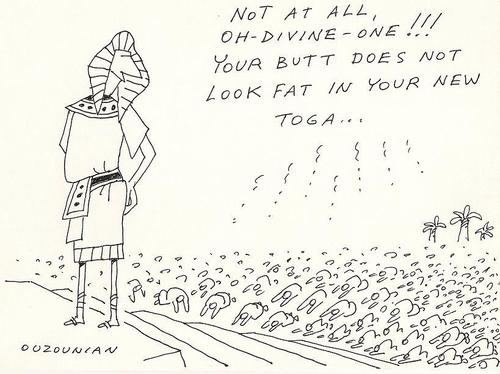 NOT AT ALL,
OH-DIVINE-ONE!!!
YOUR BUTT DOES NOT
LOOK FAT IN YOUR NEW
TOGA...
OUZOUNIAN